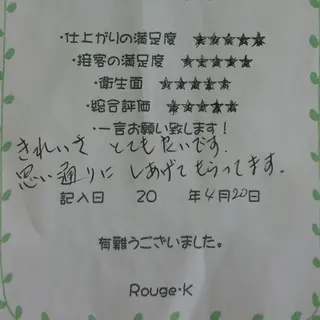 ・仕上がりの満足度 ★★★★★
・接客の満足度 ★★★★★
・衛生面 ★★★★★
・総合評価 ★★★★★
・一言お願い致します！
きれいさ とても良いです。
思い通りに しあげてもらってます。
記入日 20 年4月20日
有難うございました。
Rouge・K